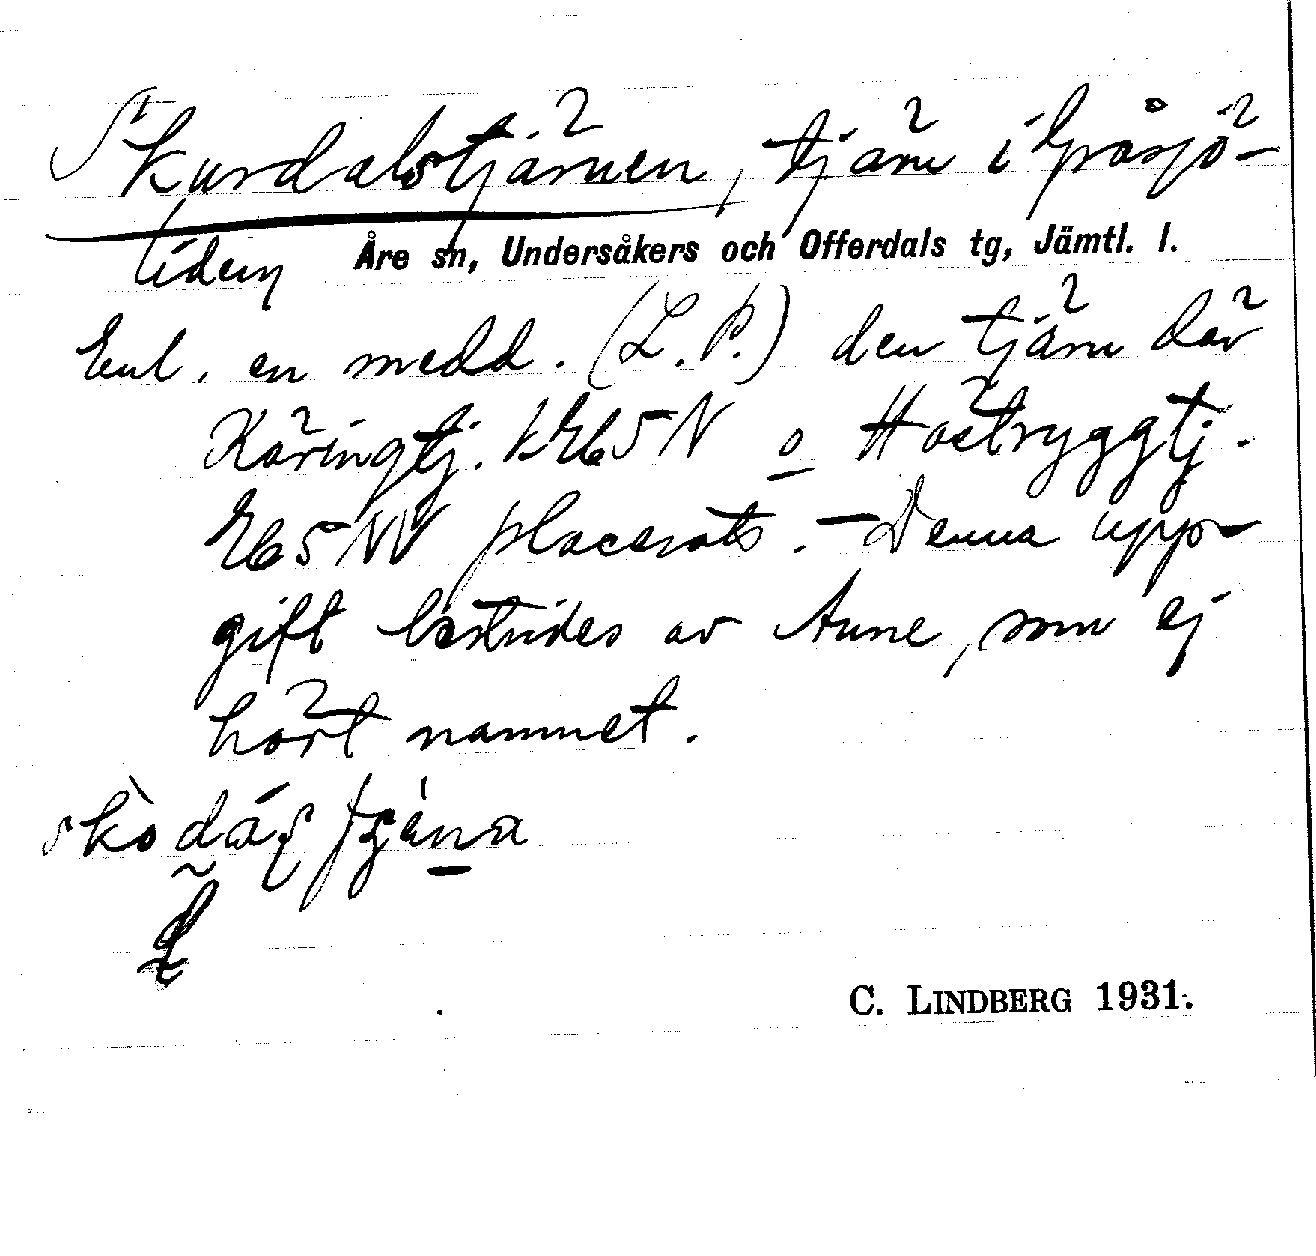 Skurdalstjärnen, tjärn i Gråsjö-
liden Åre sn, Undersåkers och Offerdals tg, Jämtl. l.
Enl. en medd. (L.P.) den tjärn där
Käringtj. E65N o Hästryggtj.
E65NV placerats. – Denna upp-
gift bestrides av Aune, som ej
hört namnet.
C. LINDBERG 1931.